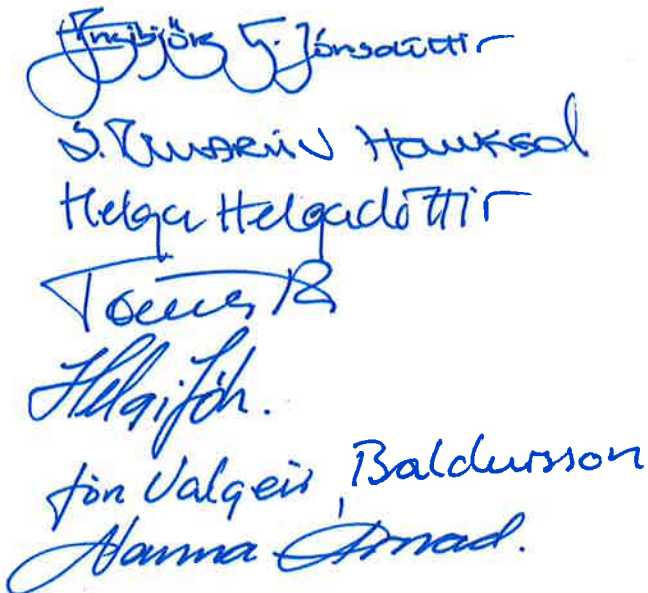 Ingibjörg G. Jónsdóttir
S. Rúnarin Hauksd
Helga Helgadóttir
Tómas
Helgi Jóh.
Jón Valgeir Baldursson
Hanna Árnad.